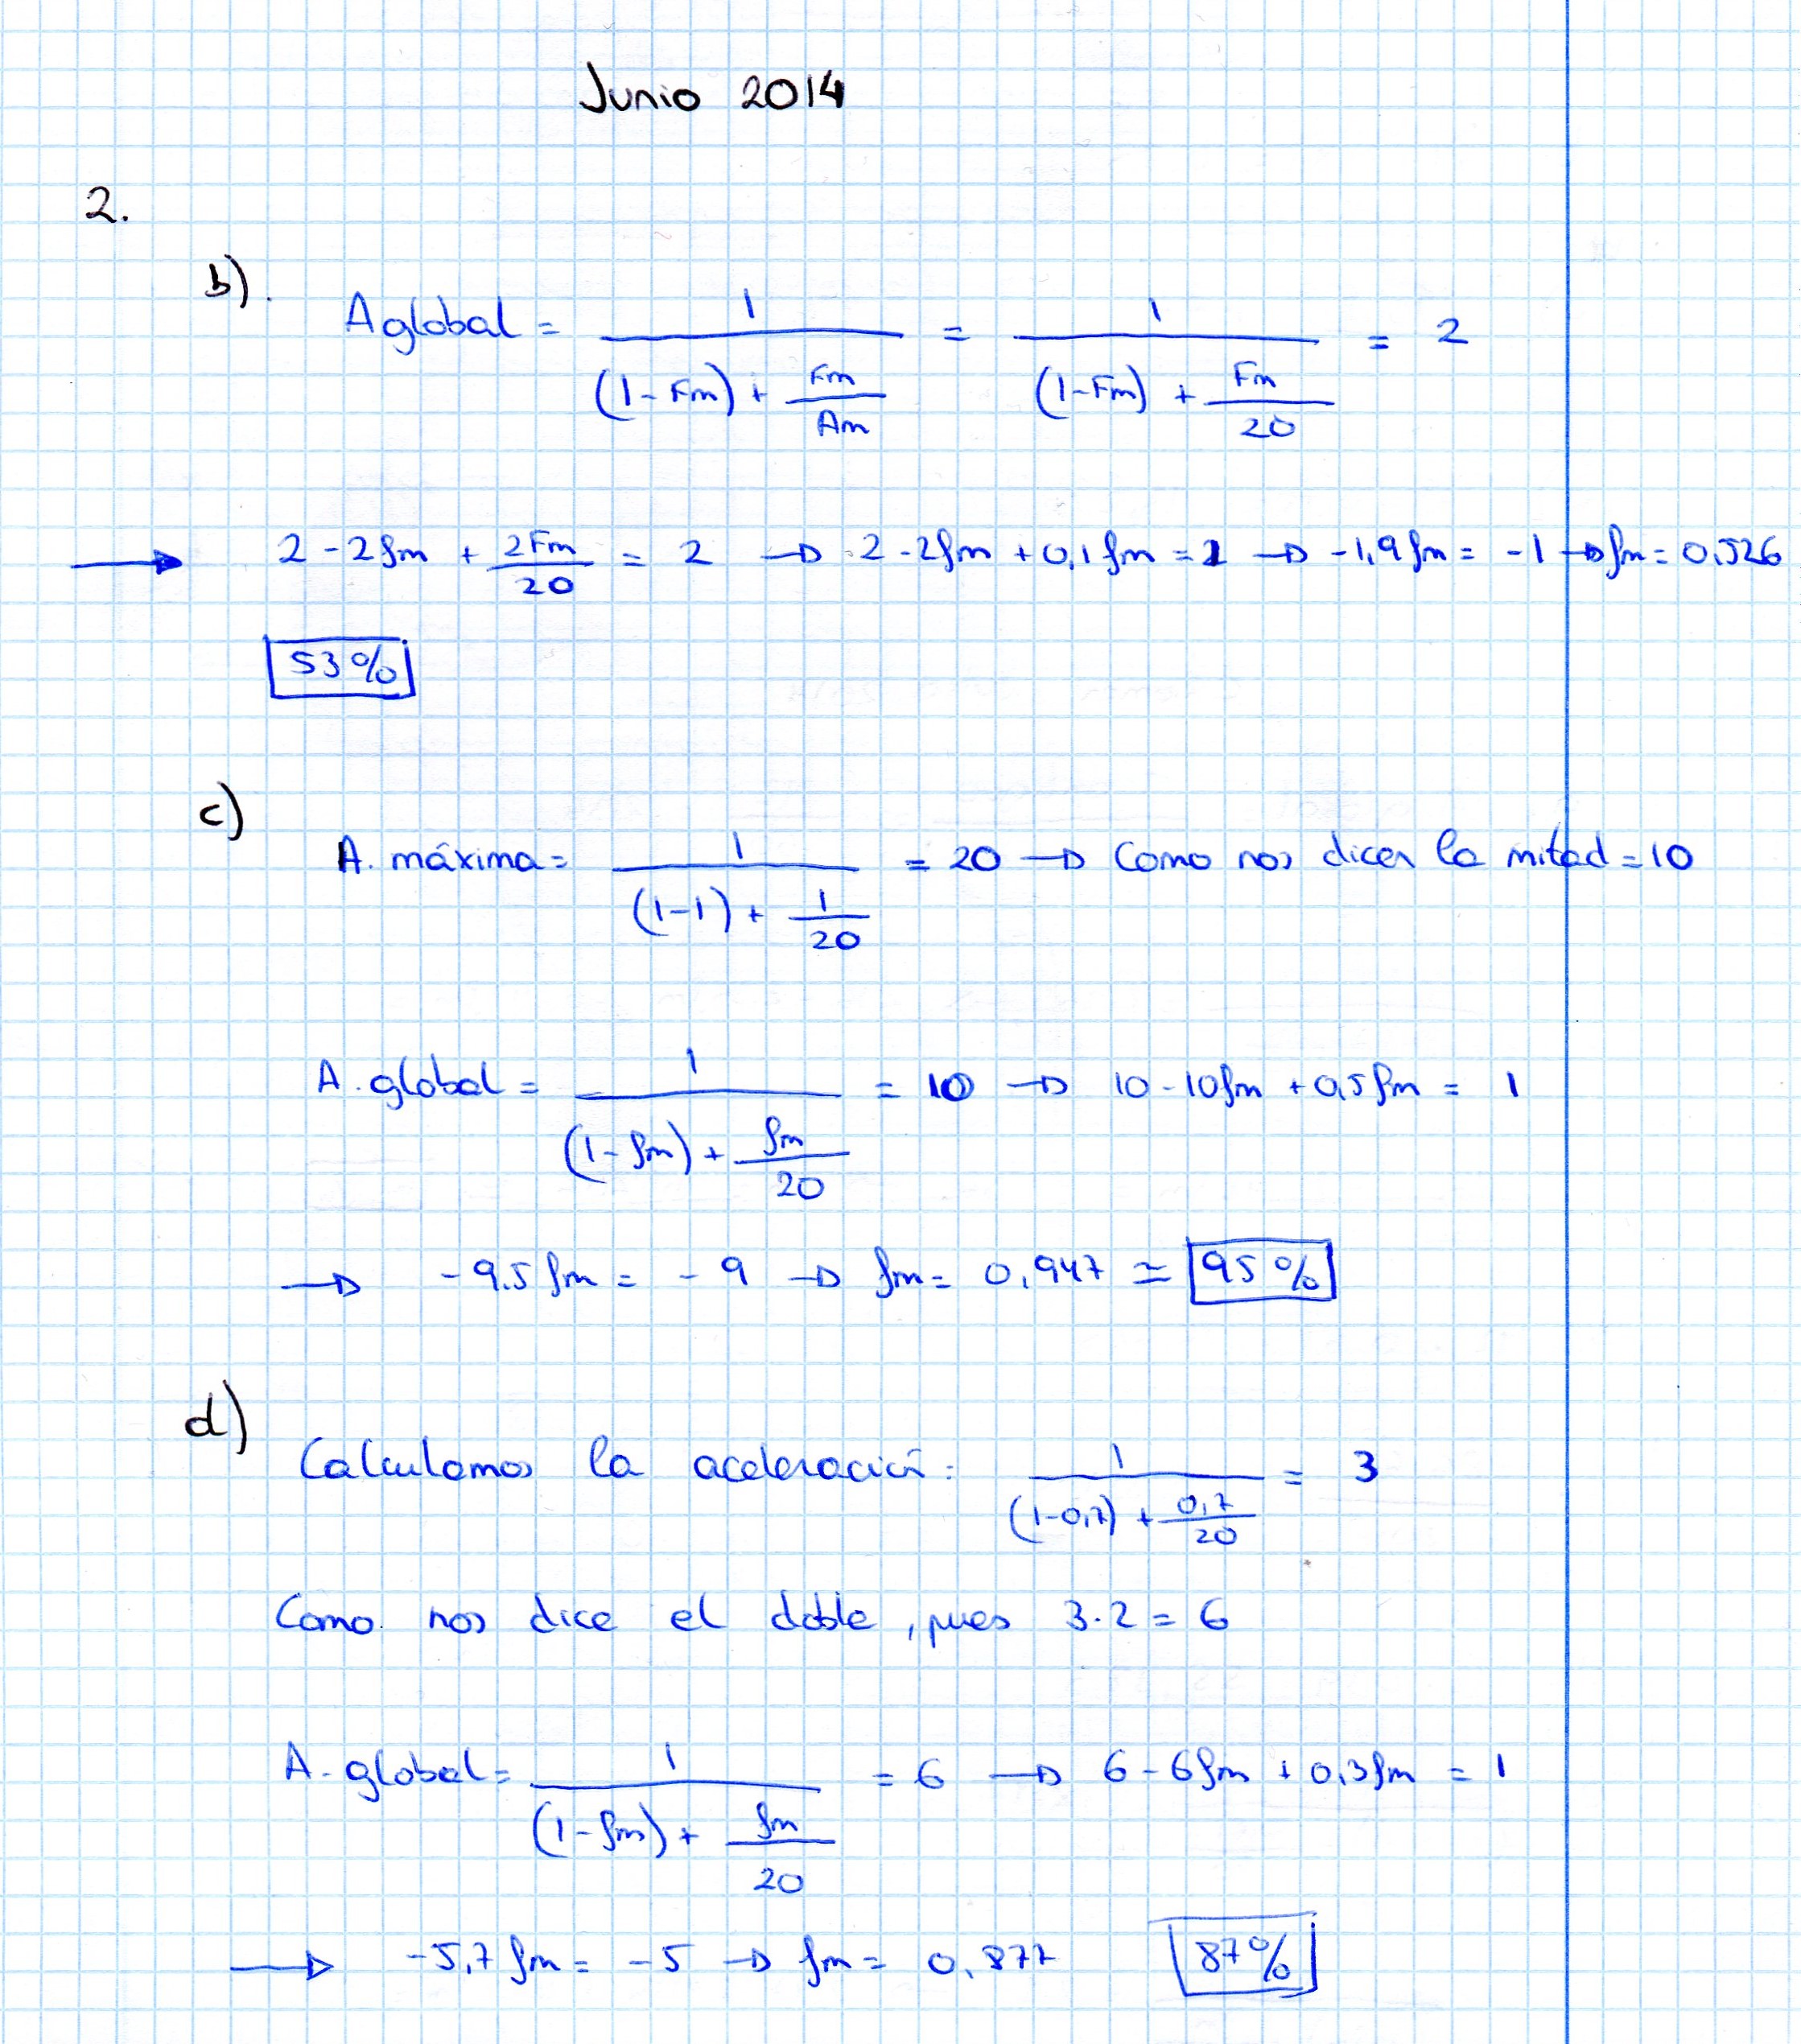 Junio 2014
2.
b).
Aglobal = 1 / ((1-Fm) + Fm/Am) = 1 / ((1-Fm) + Fm/20) = 2
→ 2 - 2fm + 2Fm/20 = 2 → 2 - 2fm + 0,1fm = 1 → -1,9fm = -1 → fm = 0,526
53%
c)
A. máxima = 1 / ((1-1) + 1/20) = 20 → Como nos dicen la mitad = 10
A. global = 1 / ((1-fm) + fm/20) = 10 → 10 - 10fm + 0,5fm = 1
→ -9.5fm = -9 → fm = 0,947 ≃ 95%
d)
Calculamos la aceleración: 1 / ((1-0,7) + 0,7/20) = 3
Como nos dice el doble, pues 3·2 = 6
A. global = 1 / ((1-fm) + fm/20) = 6 → 6 - 6fm + 0,3fm = 1
→ -5,7fm = -5 → fm = 0,877 87%